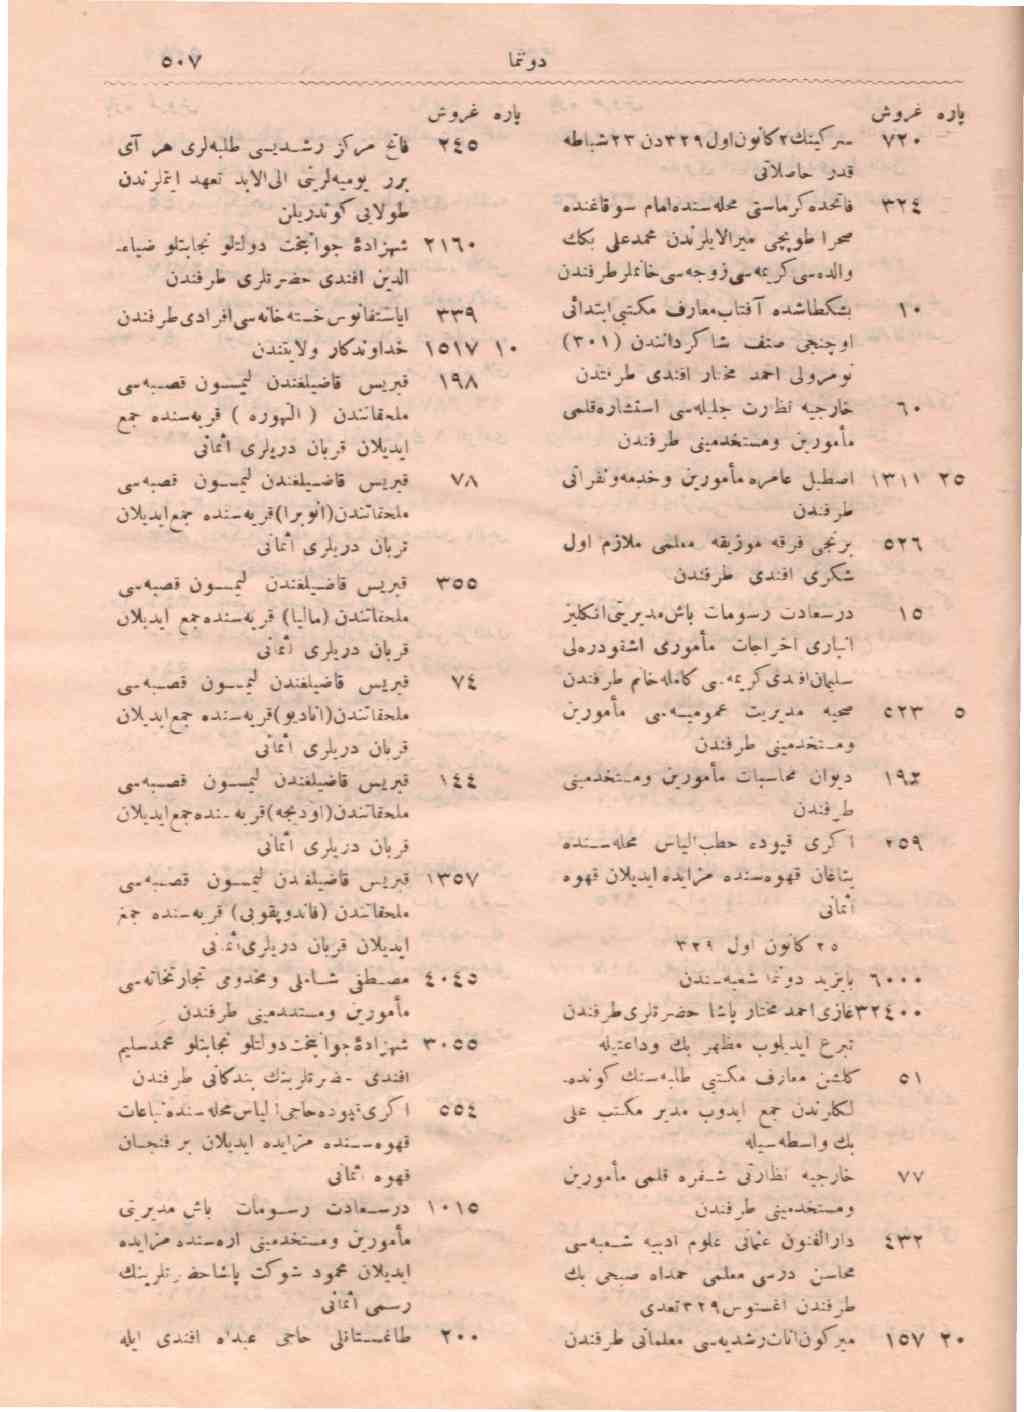 دوننما ٥٠٧
پاره غروش
٧٢٠ سركینك ٢ كانون اول ٣٢٩ دن ٢٣ شباطه
قدر حاصلاتی
٣٢٤ فاتحده كرماستی محله سنده امام سوقاغنده
صحرا طوپجی میرالایلرندن محمدعلی بكك
والده سی كریمه سی زوجه سی خانملر طرفندن
١٠ بشكطاشده آفتاب معارف مكتبی ابتدائی
اوچنجی صنف شاكرداندندن (٣٠١)
نومرولی احمد مختار افندی طرفندن
٦٠ خارجیه نظارت جلیله سی استشاره قلمی
مأمورین ومستخدمینی طرفندن
٢٥ ١٣١١ اصطبل عامره مأمورین وخدمه ونفراتی
طرفندن
٥٢٦ برنجی فرقه موزیقه معلمی ملازم اول
شكری افندی طرفندن
١٥ درسعادت رسومات باش مدیریتی انكلیز
انباری اخراجات مأموری اشقودره لی
سلیمان افندی كریمه سی كامله خانم طرفندن
٥ ٥٢٣ صحیه مدیریت عمومیه سی مأمورین
ومستخدمینی طرفندن
١٩٤ دیوان محاسبات مأمورین ومستخدمینی
طرفندن
٢٥٩ اكری قپوده حطب الیاس محله سنده
قهوه سنده مزایده ایدیلان قهوه
اثمانی
٢٥ كانون اول ٣٢٩
٦٠٠٠ بایزید دوننما شعبه سندن
٣٢٤٠٠ غازی احمد مختار پاشا حضرتلری طرفندن
تبرع ایدیلوب مظهر بك وداعتیله
٥١ كلشن معارف مكتبی طلبه سنك كونده
لكلرندن جمع ایدوب مدیر مكتب علی
بك واسطه سیله
٧٧ خارجیه نظارتی شفره قلمی مأمورین
ومستخدمینی طرفندن
٤٣٢ دارالفنون عثمانی علوم ادبیه شعبه سی
محاسن درسی معلمی حمداه صبحی بك
طرفندن اغستوس ٣٢٩ تعدی
٢٠ ١٥٧ میركون اناث رشدیه سی معلماتی طرفندن
پاره غروش
٢٤٥ فاتح مركز رشدیسی طلبه لری هر آی
برر یومیه لرینی الی الابد تعهد ایتملرندن
طولایی كوندریلن
٢١٦٠ شهزادۀ جوانبخت دولتلو نجابتلو ضیاء
الدین افندی حضرتلری طرفندن
٣٣٩ ایاستفانوس خسته خانه سی افرادی طرفندن
١٠ ١٥١٧ خداوندكار ولایتندن
١٩٨ قبریس قاضیلغندن لیمسون قصبه سی
ملحقاتندن ( الهوره ) قریه سنده جمع
ایدیلان قربان دریلری اثمانی
٧٨ قبریس قاضیلغندن لیمسون قصبه سی
ملحقاتندن (انوبرا) قریه سنده جمع ایدیلان
قربان دریلری اثمانی
٣٥٥ قبریس قاضیلغندن لیمسون قصبه سی
ملحقاتندن (مالیا) قریه سنده جمع ایدیلان
قربان دریلری اثمانی
٧٤ قبریس قاضیلغندن لیمسون قصبه سی
ملحقاتندن (انادیو) قریه سنده جمع ایدیلان
قربان دریلری اثمانی
١٤٤ قبریس قاضیلغندن لیمسون قصبه سی
ملحقاتندن (اودیجه) قریه سنده جمع ایدیلان
قربان دریلری اثمانی
١٣٥٧ قبریس قاضیلغندن لیمسون قصبه سی
ملحقاتندن (فاندوپقوبی) قریه سنده جمع
ایدیلان قربان دریلری اثمانی
٤٠٤٥ مصطفی شاملی ومخدومی تجارتخانه سی
مأمورین ومستخدمینی طرفندن
٣٠٥٥ شهزادۀ جوانبخت دولتلو نجابتلو محمد سلیم
افندی حضرتلرینك بندكانی طرفندن
٥٥٤ اكری قپوده حاجی الیاس محله سنده
قهوه سنده مزایده ایدیلان بر فنجان
قهوه اثمانی
١٠١٥ درسعادت رسومات باش مدیریتی
مأمورین ومستخدمینی اره سنده مزایده
ایدیلان محمود شوكت پاشا حضرتلرینك
رسمی اثمانی
٢٠٠ طاغستانلی حاجی عبداه افندی ایله